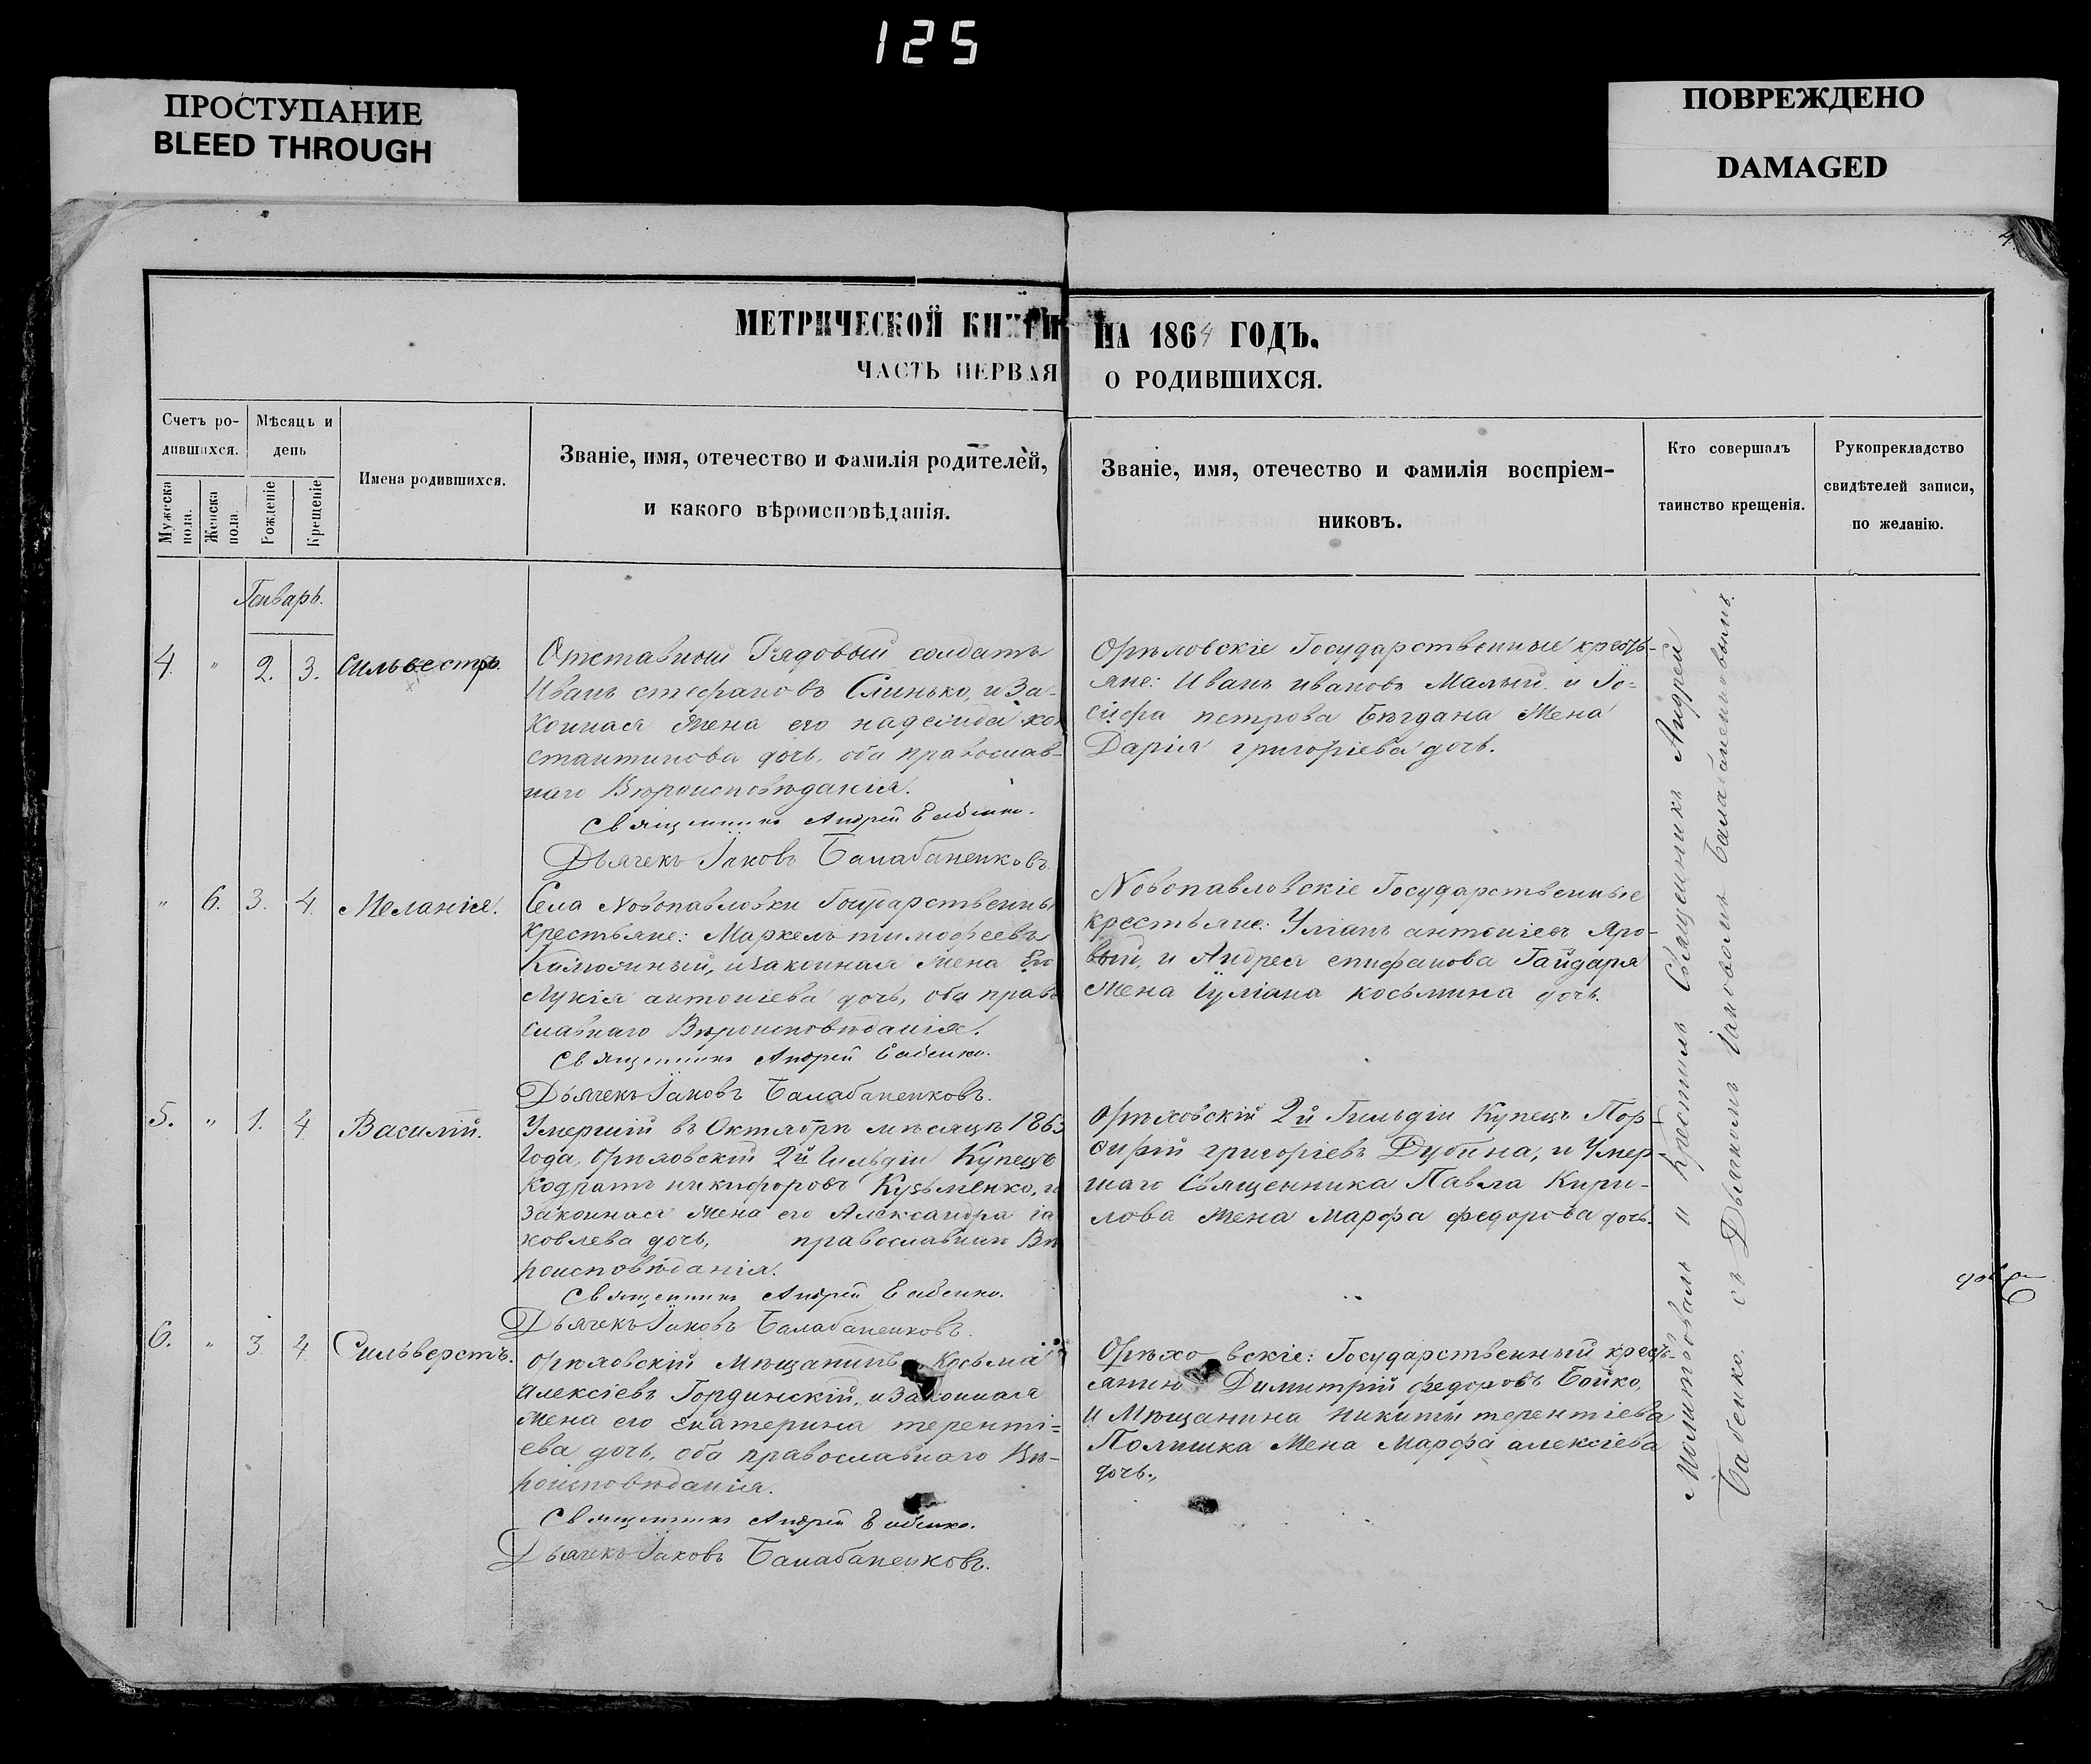 125
ПРОСТУПАНИЕ
BLEED THROUGH
ПОВРЕЖДЕНО
DAMAGED
4.
МЕТРИЧЕСКОЙ КНИГИ НА 1864 ГОДЪ.
ЧАСТЬ ПЕРВАЯ О РОДИВШИХСЯ.
Счетъ ро-
дившихся.
Мужеска
пола.
Женска
пола.
Мѣсяцъ и
день
Рожденіе
Крещеніе
Имена родившихся.
Званіе, имя, отечество и фамилія родителей,
и какого вѣроисповѣданія.
Званіе, имя, отечество и фамилія воспріем-
никовъ.
Кто совершалъ
таинство крещенія.
Рукоприкладство
свидѣтелей записи,
по желанію.
Генварь.
4. " 2. 3. Сильвестръ.
Отставный Рядовый солдатъ
Иванъ стефановъ Слинько, и За-
конная жена его надежда кон
стантинова дочь, оба православ-
наго Вѣроисповѣданія.
Священникъ Андрей Бабенко.
Дьячекъ Іаковъ Балабаненковъ.
Орѣховскіе Государственные кресть-
яне: Иванъ ивановъ Малый, и Іо-
сифа петрова Богдана жена
Дарія григоріева дочь.
" 6. 3. 4. Меланія.
Села Новопавловки Государственны
крестьяне: Маркелъ тимофеевъ
, и законная жена Его
Лукія антоніева дочь, оба право
славнаго Вѣроисповѣданія.
Священникъ Андрей Бабенко.
Дьячекъ Іаковъ Балабаненковъ.
Новопавловскіе Государственные
крестьяне: Уліанъ антоніевъ Яро-
вый, и Андрея епифанова Гайдаря
жена Іуліана косьмина дочь.
5. " 1. 4. Василій.
Умершій въ Октябрѣ мѣсяцѣ 1863
года, орѣховскій 2й Гильдіи Купецъ
Кодратъ никифоровъ Кузьменко, и
законная жена его Александра іа
ковлева дочь, православнаго Вѣ
роисповѣданія.
Священникъ Андрей Бабенко.
Дьячекъ Іаковъ Балабаненковъ.
Орѣховскій 2й Гильдіи Купецъ Пор-
фирій григоріевъ Дубина, и Умер-
шаго Священника Павла Кири-
лова жена марфа федорова дочь.
6. " 3. 4. Сильверстъ.
Орѣховскій Мѣщанинъ Косьма
Алексіевъ Гординскій, и Законная
жена его Екатерина теренті=
ева дочь, оба православнаго Вѣ-
роисповѣданія.
Священникъ Андрей Бабенко.
Дьячекъ Іаковъ Балабаненковъ.
Орѣхо вскіе: Государственный кресть-
янинъ Димитрій федоровъ Бойко,
и Мѣщанина никиты терентіева
жена Марфа алексіева
дочь.,
Молитвовалъ и крестилъ Священникъ Андрей
Бабенко. съ Дьячкомъ Іаковомъ Балабаненковымъ.